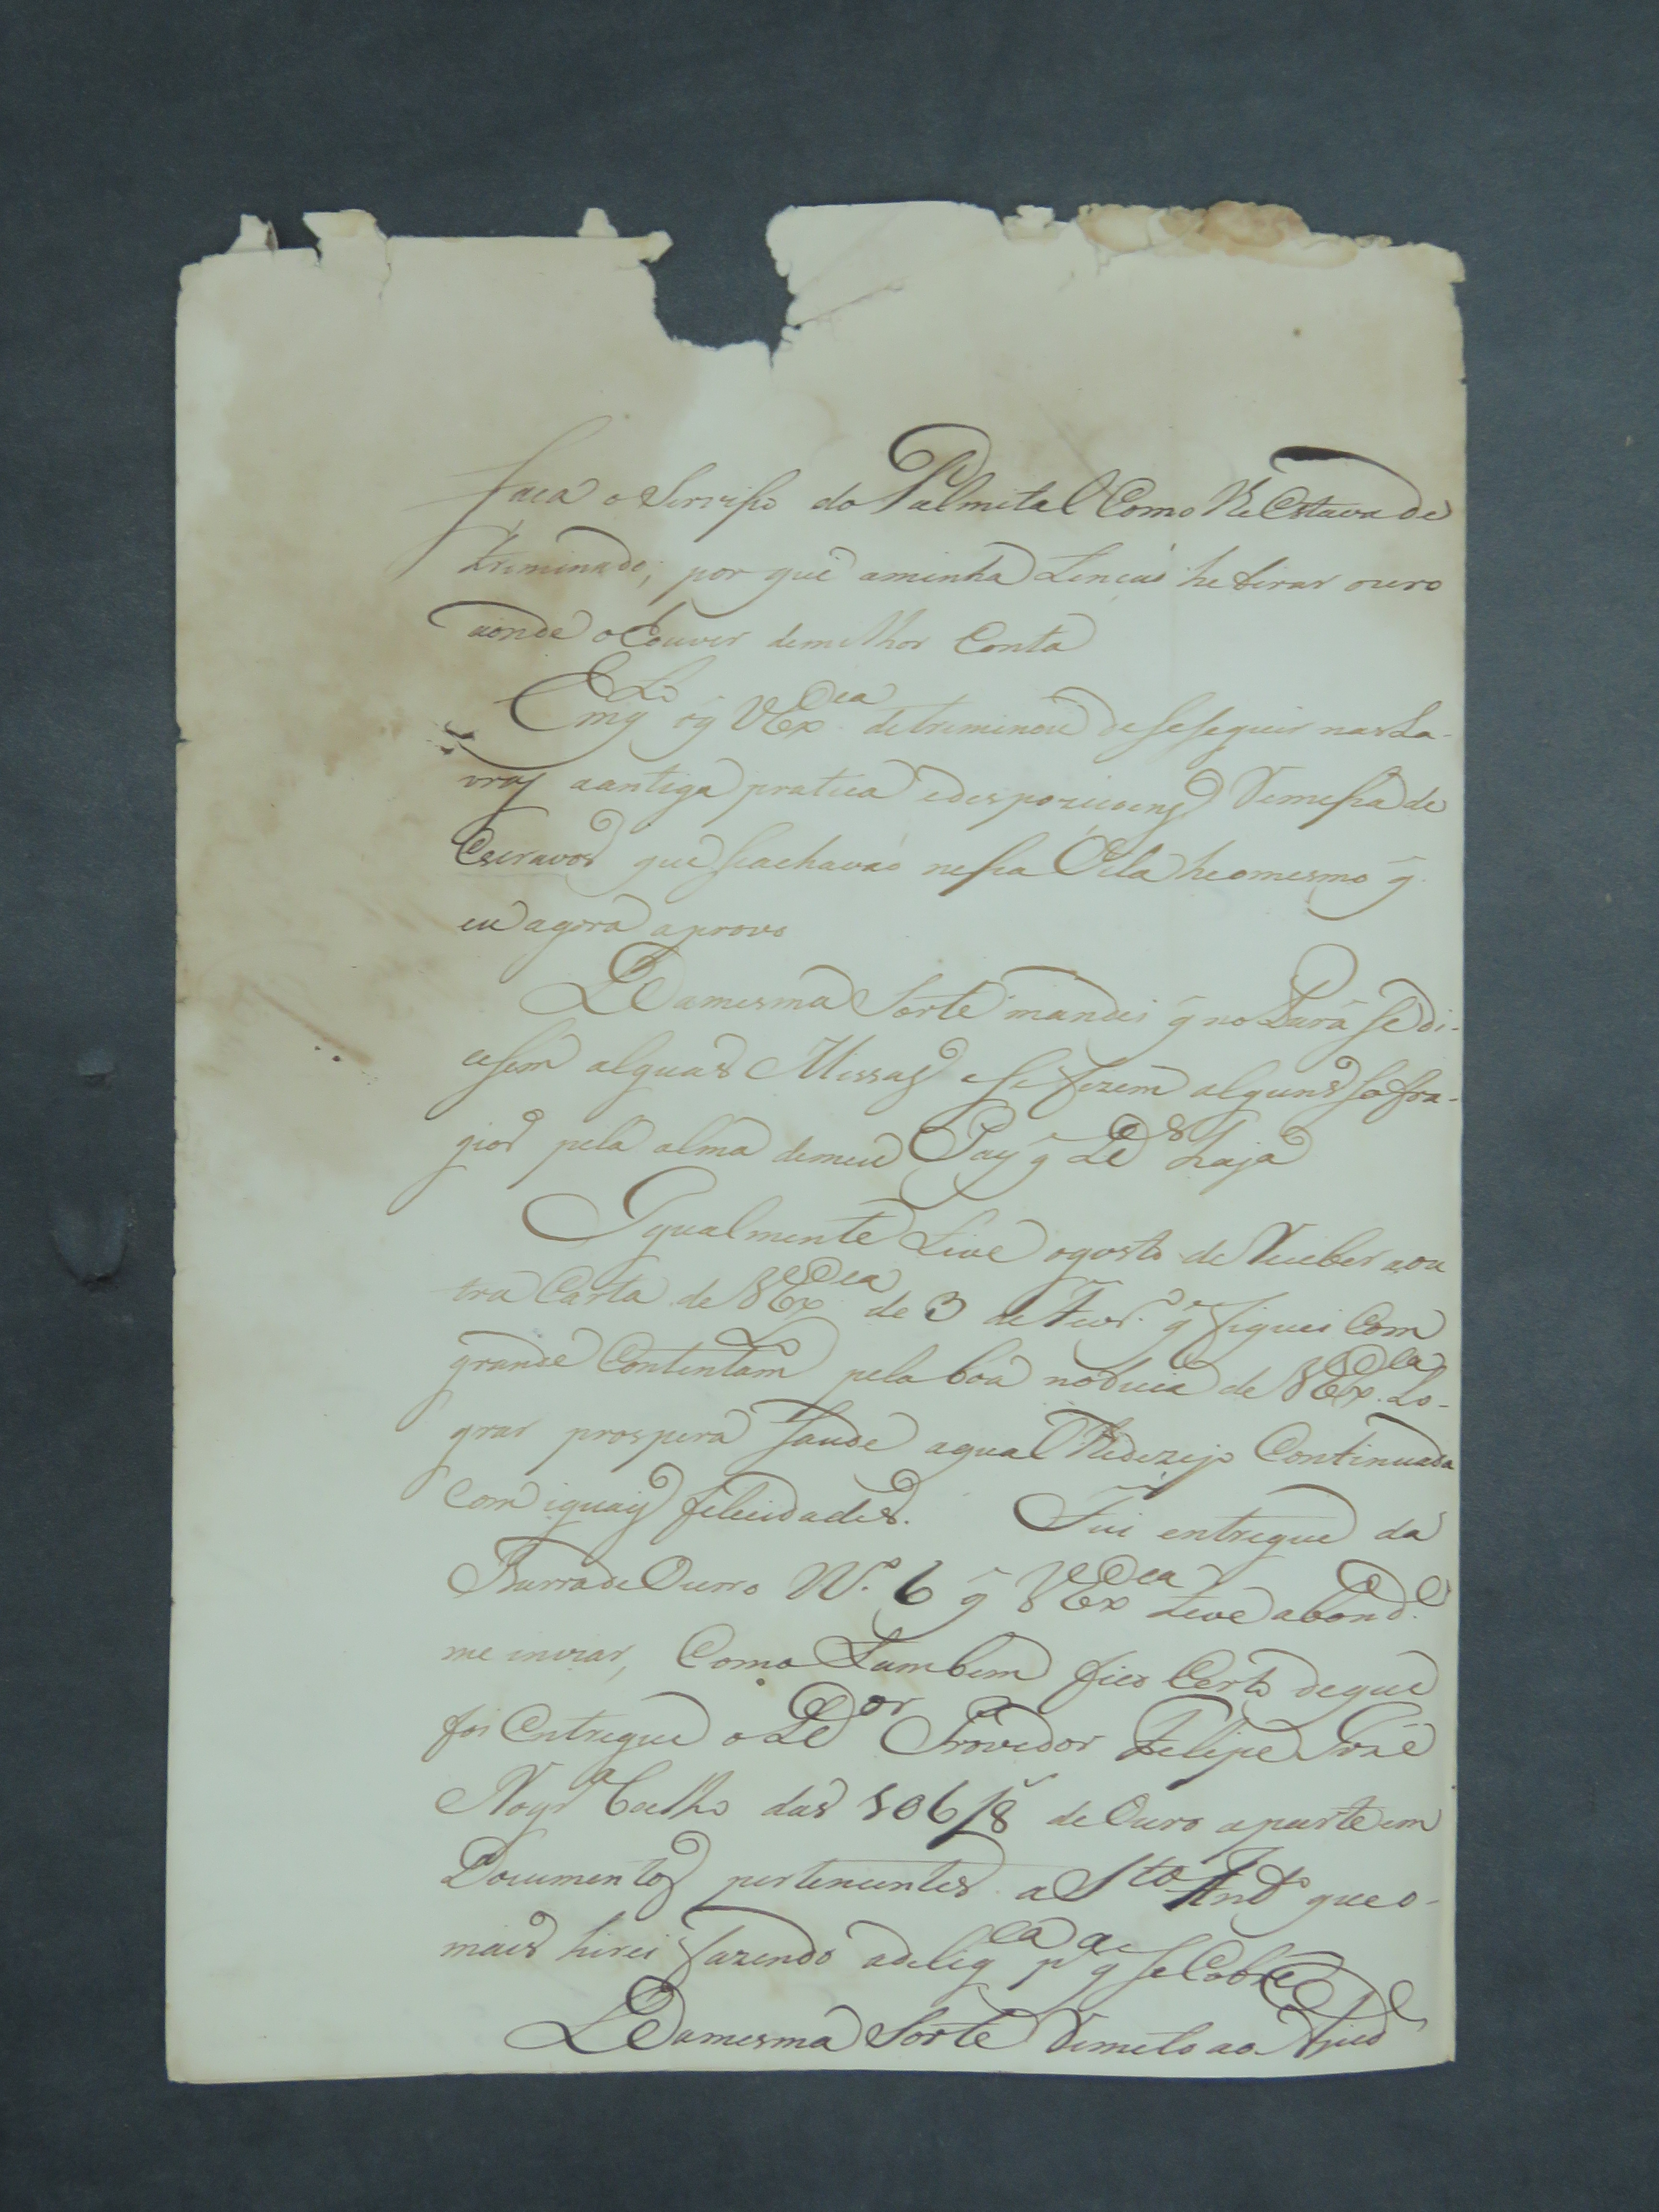 faca o Servisso do Palmital Como Ihe Estava de
triminado; por que aminha tencaó he tirar ouro
aonde o Couver demilhor Conta
Emqto oq VExcia detriminou desesequir nas La-
vras aantiga pratica edespozicoens Remessa de
Escravos que seachavaó nessa Vila heomesmo q̃
eu agora aprovo
Damesma Sorte mandei q̃ no Pará se di-
cesem alguas Missas esefizem alguns sofra-
gios pela alma demeu Pay q̃ Ds haja
Igualmente tive ogosto de Receber aou
tra Carta de VExcia de 3 de Fevro q̃ fiquei Com
grande Contentamto pela boa noticia de VExcia Lo-
grar prospera saude aqual lhedezejo Continuada
Com iguais felicidades. Fui entregue da
Barra de Ouro No. 6 q̃ VExcia teve abonde
me inviar, Como tambem fico Certo deque
foi Entregue o Dor Provedor Felipe Jozé
Nogra Coelho das 506/8 de Ouro aparte em
Documentos pertencentes a Sto Anto que o-
mais hirei fazendo adeligca pa q̃ se Cobre
Damesma Sorte Remeto ao